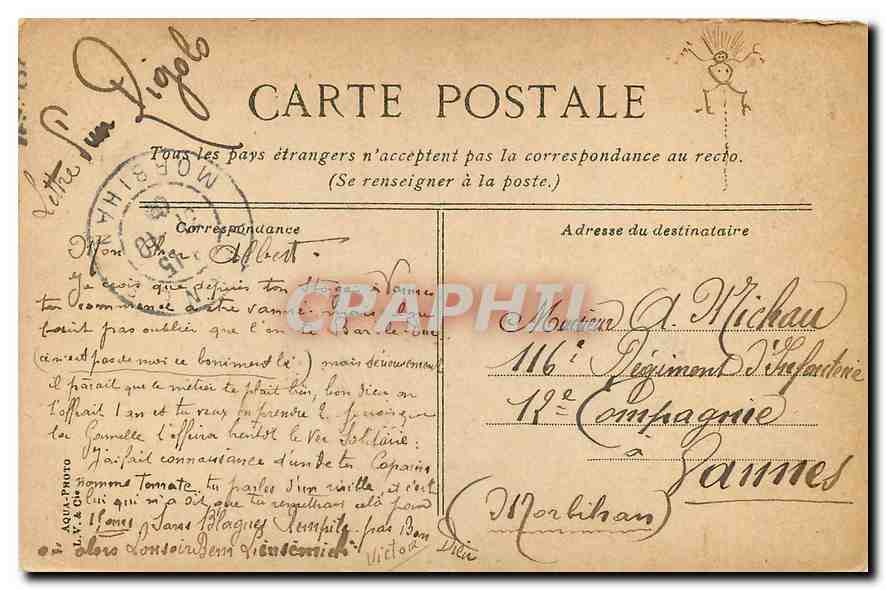 Lettre d'un Rigolo
CARTE POSTALE
Tous les pays étrangers n'acceptent pas la correspondance au recto.
(Se renseigner à la poste.)
MORBIHAN
Correspondance
Adresse du destinataire
Mon cher Albert.
Je crois que depuis ton stage à Vannes
ton commence à être vanné mais
pas oublier que l'on
(ce n'est pas de moi ce boniment là) mais sérieusement
il paraît que le métier te plait bien, bon dieu on
t'offrait 1 an et tu veux en prendre 2
la Gamelle t'offrira bientôt le Ver Solitaire.
J'ai fait connaissance d'un de tes Copains
nommé Tomate, tu parles d'un et c'est
lui qui m'a dit que tu remettrais cela pour
1 Sans Blagues Rempile pas Bon Dieu
ou alors Bonsoir
Victor
Monsieur A. Michau
116e Régiment d'Infanterie
12e Compagnie
à
Vannes
(Morbihan)
AQUA-PHOTO
L.V. & Cie
CRAPHTI